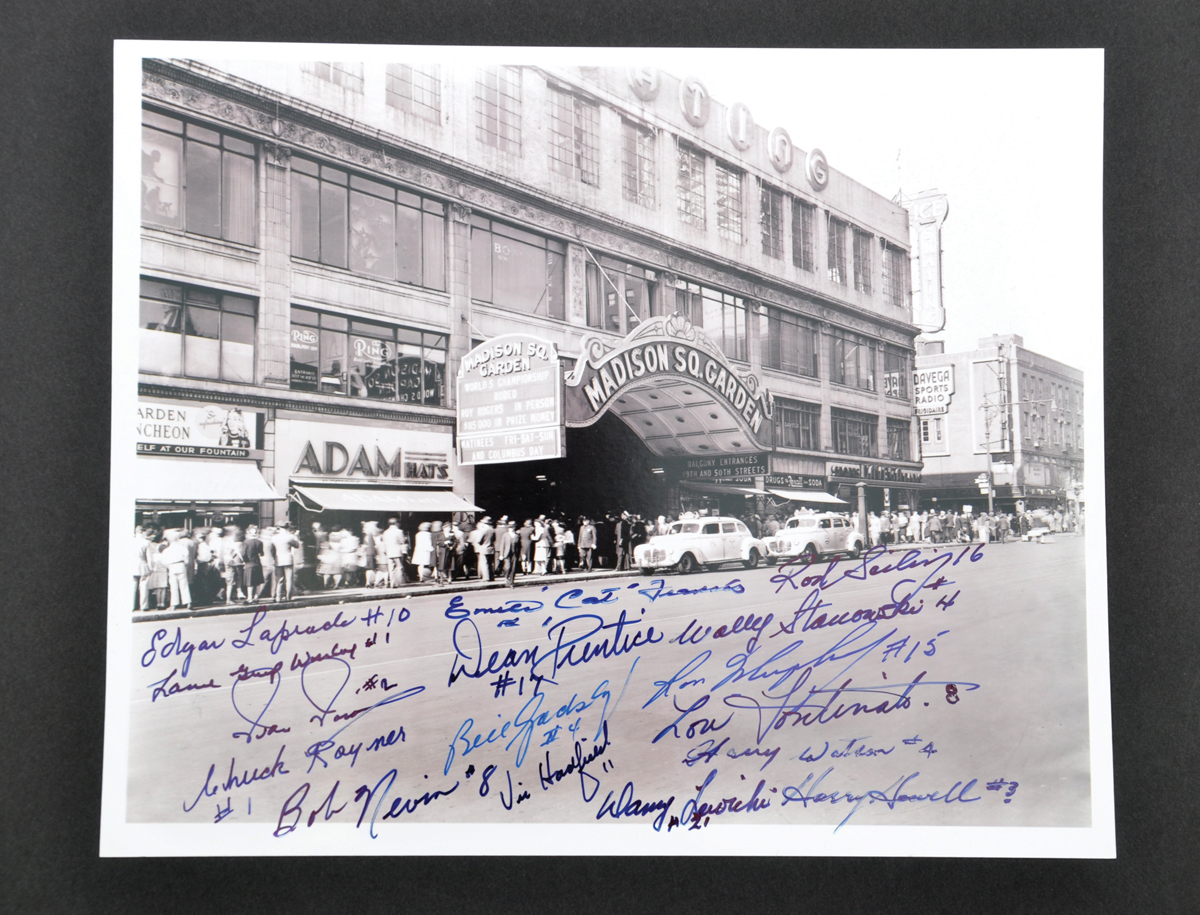 ATING
BO
Ring
Ring
ARDEN
NCHEON
ELF AT OUR FOUNTAIN
ADAM HATS
ADAM HATS
MADISON SQ.
GARDEN
WORLD'S CHAMPIONSHIP
RODEO
ROY ROGERS IN PERSON
PRIZE MONEY
MATINEES FRI-SAT-SUN
AND COLUMBUS DAY
MADISON SQ. GARDEN
BALCONY ENTRANCES
49TH AND 50TH STREETS
DRUGS Rexall SODA
DAVEGA
SPORTS
RADIO
FRIGIDAIRE
Edgar Laprade #10
Emile "Cat" Francis
Rod Seiling 16
Lorne Gump Worsley #1
Dean Prentice
#17
Wally Stanowski #4
#2
Ron Murphy #15
Chuck Rayner
#1
Bill Gadsby
#4
Lou Fontinato. 8
Harry Watson #4
Bob Nevin #8
Vic Hadfield
11
Danny Lewicki
#21
Harry Howell #3